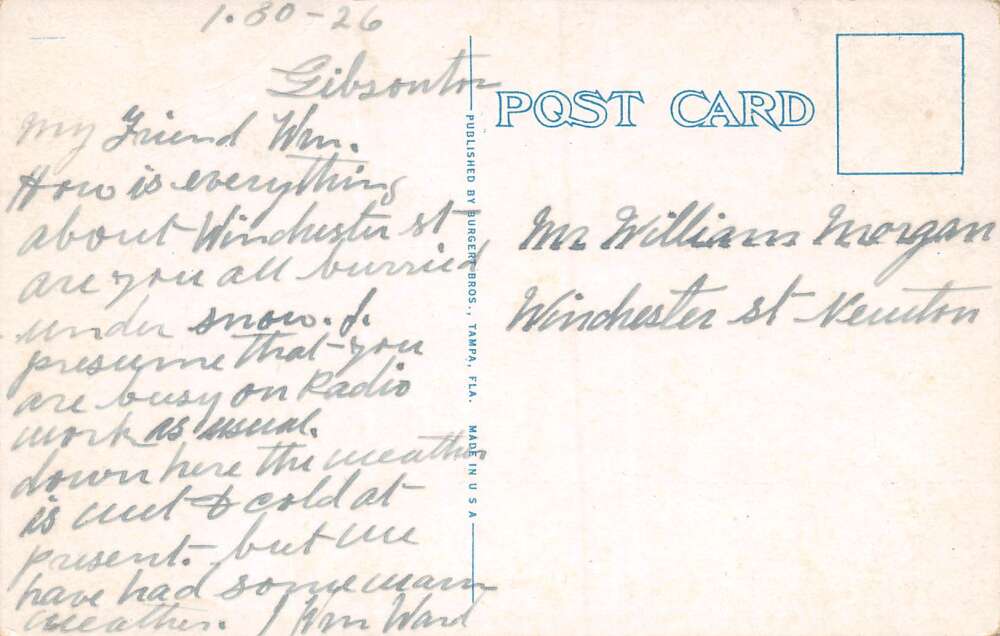 1-30-26
Gibsonton
My Friend Wm.
How is everything
about Winchester st
are you all burried
under snow. I.
presume that you
are busy on Radio
work as usual.
down here the weather
is wet & cold at
present. but we
have had some warm
weather. / Wm Ward
POST CARD
PUBLISHED BY BURGERT BROS., TAMPA, FLA. MADE IN U S A
Mr William Morgan
Winchester st Newton